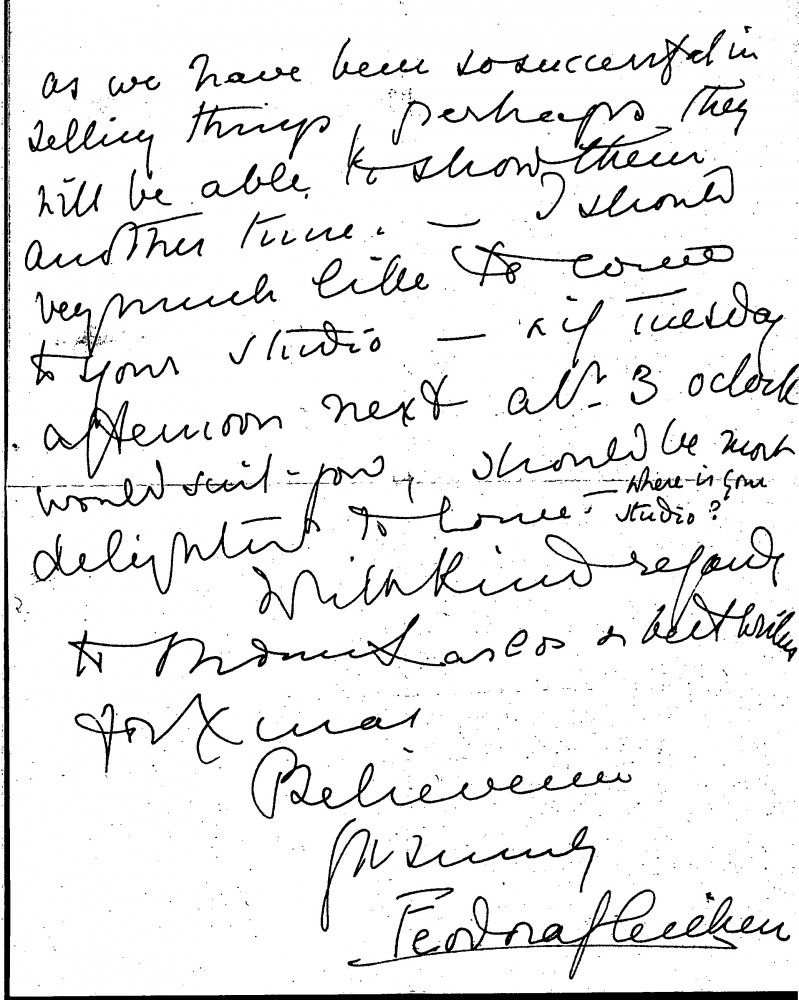 as we have been so successful in
selling things, perhaps they
will be able to show them
another time. — I should
very much like to come
to your studio — & if Tuesday
afternoon next abt. 3 oclock
would suit you, should be most
delighted to come. — where is your
studio?
With kind regards
to & best wishes
for Xmas
Believe me
yrs sincerely
Feodora Gleichen